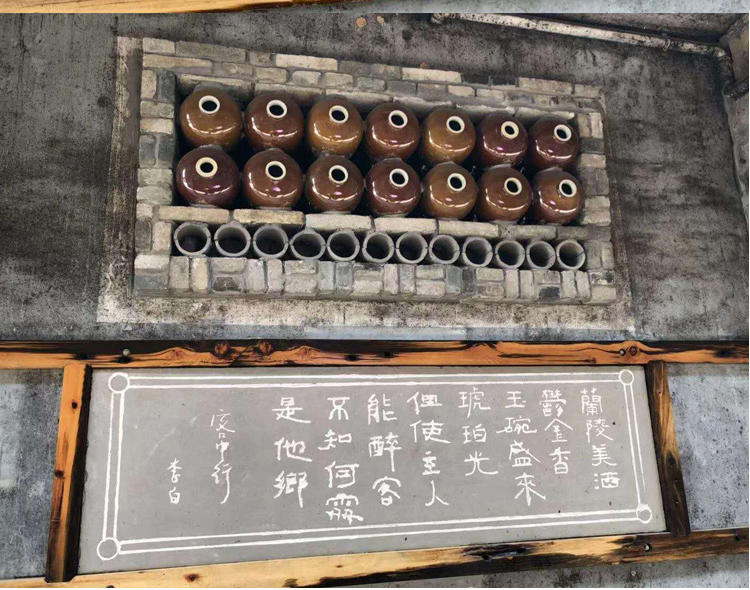 蘭陵美酒
鬱金香
玉碗盛來
琥珀光
但使主人
能醉客
不知何處
是他鄉
客中行
李白